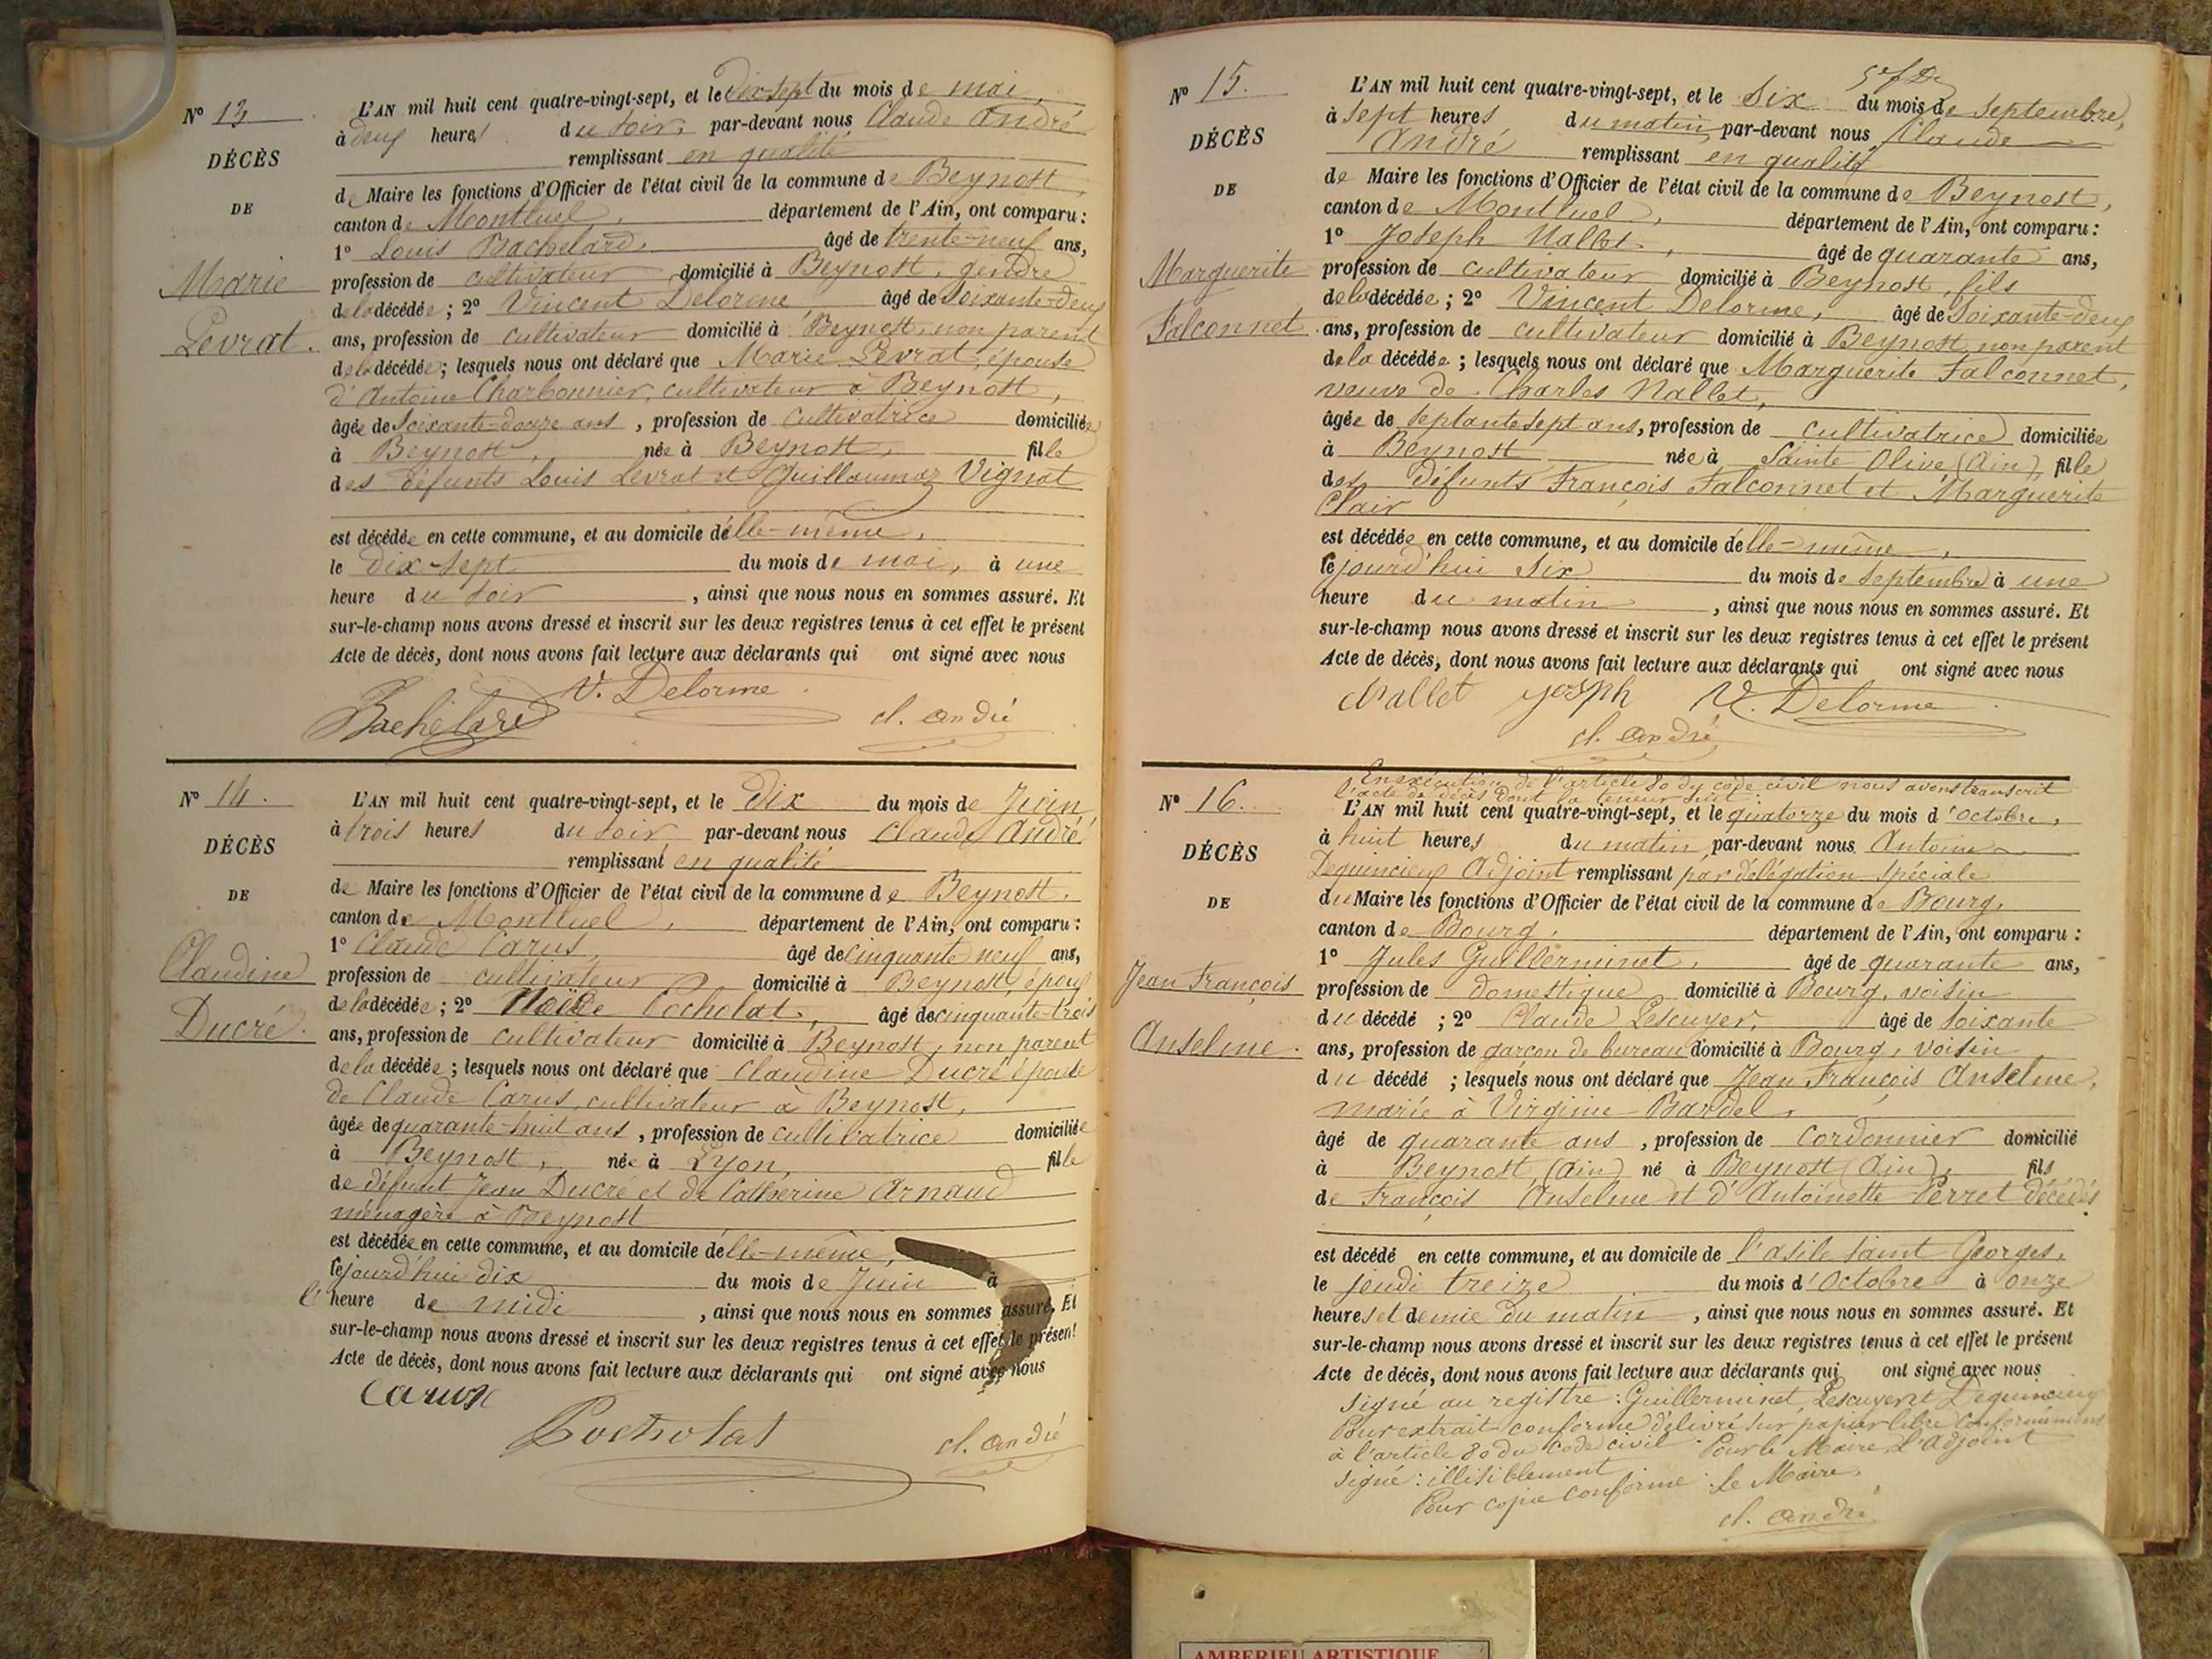 N° 13
DÉCÈS
DE
Marie
Levrat.
L'AN mil huit cent quatre-vingt-sept, et le dix-sept du mois de mai,
à deux heures du soir, par-devant nous Claude André
remplissant en qualité
de Maire les fonctions d'Officier de l'état civil de la commune de Beynost,
canton de Montluel, département de l'Ain, ont comparu :
1° Louis Bachelard, âgé de trente-neuf ans,
profession de cultivateur domicilié à Beynost, gendre
de la décédée ; 2° Vincent Delorme âgé de soixante-deux
ans, profession de cultivateur domicilié à Beynost, non parent
de la décédée ; lesquels nous ont déclaré que Marie Levrat, épouse
d'Antoine Charbonnier, cultivateur à Beynost,
âgée de soixante-douze ans, profession de cultivatrice domiciliée
à Beynost, née à Beynost, fille
des défunts Louis Levrat et Guillaumaz Vignat
est décédée en cette commune, et au domicile d'elle-même,
le dix-sept du mois de mai, à une
heure du soir, ainsi que nous nous en sommes assuré. Et
sur-le-champ nous avons dressé et inscrit sur les deux registres tenus à cet effet le présent
Acte de décès, dont nous avons fait lecture aux déclarants qui ont signé avec nous
Bachelard V. Delorme cl. andré
N° 14.
DÉCÈS
DE
Claudine
Ducré.
L'AN mil huit cent quatre-vingt-sept, et le dix du mois de Juin
à trois heures du soir par-devant nous Claude André
remplissant en qualité
de Maire les fonctions d'Officier de l'état civil de la commune de Beynost,
canton de Montluel, département de l'Ain, ont comparu :
1° Claude Carus, âgé de cinquante neuf ans,
profession de cultivateur domicilié à Beynost, époux
de la décédée ; 2° Cocholat, âgé de cinquante-trois
ans, profession de cultivateur domicilié à Beynost, non parent
de la décédée ; lesquels nous ont déclaré que Claudine Ducré épouse
de Claude Carus, cultivateur à Beynost,
âgée de quarante-huit ans, profession de cultivatrice domiciliée
à Beynost, née à Lyon, fille
de défunt Jean Ducré et de Catherine Arnaud
ménagère à Beynost
est décédée en cette commune, et au domicile d'elle-même,
le jourd'hui dix du mois de Juin à
l'heure de midi, ainsi que nous nous en sommes assuré. Et
sur-le-champ nous avons dressé et inscrit sur les deux registres tenus à cet effet le présent
Acte de décès, dont nous avons fait lecture aux déclarants qui ont signé avec nous
Cocholat cl. andré
N° 15.
DÉCÈS
DE
Marguerite
Falconnet.
L'AN mil huit cent quatre-vingt-sept, et le six du mois de septembre,
à sept heures du matin, par-devant nous Claude
André remplissant en qualité
de Maire les fonctions d'Officier de l'état civil de la commune de Beynost,
canton de Montluel, département de l'Ain, ont comparu :
1° Joseph Nallet, âgé de quarante ans,
profession de cultivateur domicilié à Beynost, fils
de la décédée ; 2° Vincent Delorme, âgé de soixante-deux
ans, profession de cultivateur domicilié à Beynost, non parent
de la décédée ; lesquels nous ont déclaré que Marguerite Falconnet,
veuve de Charles Nallet,
âgée de septante sept ans, profession de cultivatrice domiciliée
à Beynost née à Sainte Olive (Ain), fille
des défunts François Falconnet et Marguerite
Clair
est décédée en cette commune, et au domicile d'elle-même,
le jourd'hui six du mois de septembre à une
heure du matin, ainsi que nous nous en sommes assuré. Et
sur-le-champ nous avons dressé et inscrit sur les deux registres tenus à cet effet le présent
Acte de décès, dont nous avons fait lecture aux déclarants qui ont signé avec nous
Nallet joseph V. Delorme
cl. andré
N° 16.
DÉCÈS
DE
Jean François
Anselme.
En exécution de l'article 80 du code civil nous avons transcrit
l'acte de décès dont la teneur suit :
L'AN mil huit cent quatre-vingt-sept, et le quatorze du mois d'octobre,
à huit heures du matin, par-devant nous Antoine
Dequincieux Adjoint remplissant par délégation spéciale
du Maire les fonctions d'Officier de l'état civil de la commune de Bourg,
canton de Bourg, département de l'Ain, ont comparu :
1° Jules Guillerminet, âgé de quarante ans,
profession de domestique domicilié à Bourg, voisin
du décédé ; 2° Claude Lescuyer, âgé de soixante
ans, profession de garçon de bureau domicilié à Bourg, voisin
du décédé ; lesquels nous ont déclaré que Jean François Anselme,
marié à Virginie Bardel,
âgé de quarante ans, profession de cordonnier domicilié
à Beynost (Ain) né à Beynost (Ain), fils
de François Anselme et d'Antoinette Perret décédés
est décédé en cette commune, et au domicile de l'asile Saint Georges,
le jeudi treize du mois d'octobre à onze
heures et demie du matin, ainsi que nous nous en sommes assuré. Et
sur-le-champ nous avons dressé et inscrit sur les deux registres tenus à cet effet le présent
Acte de décès, dont nous avons fait lecture aux déclarants qui ont signé avec nous
signé au registre : Guillerminet, Lescuyer et Dequincieux
Pour extrait conforme délivré sur papier libre conformément
à l'article 80 du code civil. Pour le Maire, l'adjoint
signé : illisiblement
Pour copie conforme : Le Maire,
cl. andré
AMBERIEU ARTISTIQUE